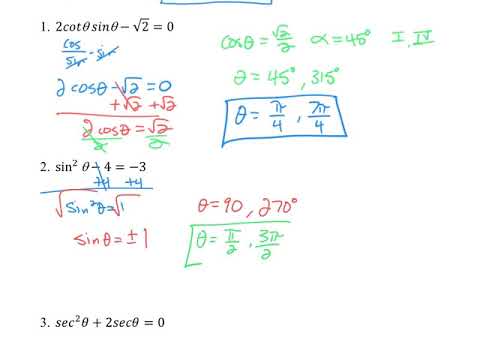 1. 2cotθsinθ − √2 = 0
cos/sin · sin
2cosθ − √2 = 0
+√2 +√2
2cosθ = √2
2 2
cosθ = √2/2 α = 45° I, IV
θ = 45°, 315°
θ = π/4, 7π/4
2. sin² θ − 4 = −3
+4 +4
√sin²θ = √1
sinθ = ± 1
θ = 90, 270°
θ = π/2, 3π/2
3. sec²θ + 2secθ = 0